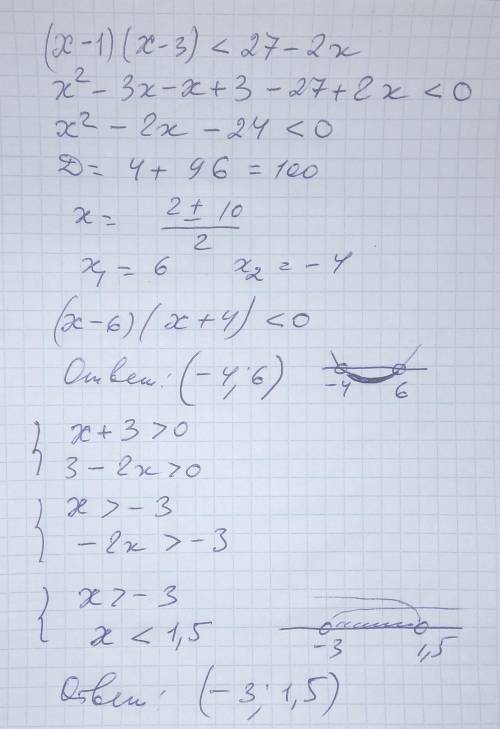 (x-1)(x-3) < 27-2x
x² - 3x - x + 3 - 27 + 2x < 0
x² - 2x - 24 < 0
D = 4 + 96 = 100
x = (2 ± 10)/2
x₁ = 6 x₂ = -4
(x-6)(x+4) < 0
Ответ: (-4; 6)
-4 6
{ x+3 > 0
3 - 2x > 0
{ x > -3
-2x > -3
{ x > -3
x < 1,5
-3 1,5
Ответ: (-3; 1,5)